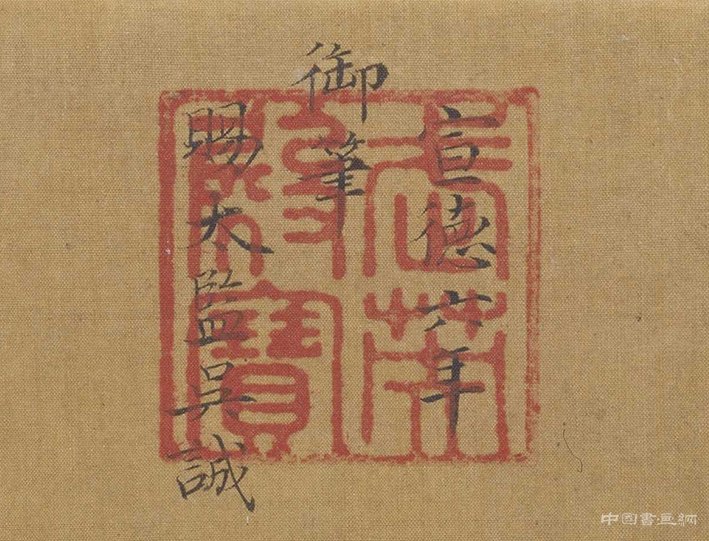 宣德六年
御筆
賜太監吳誠
武英殿寶
中國書畫網